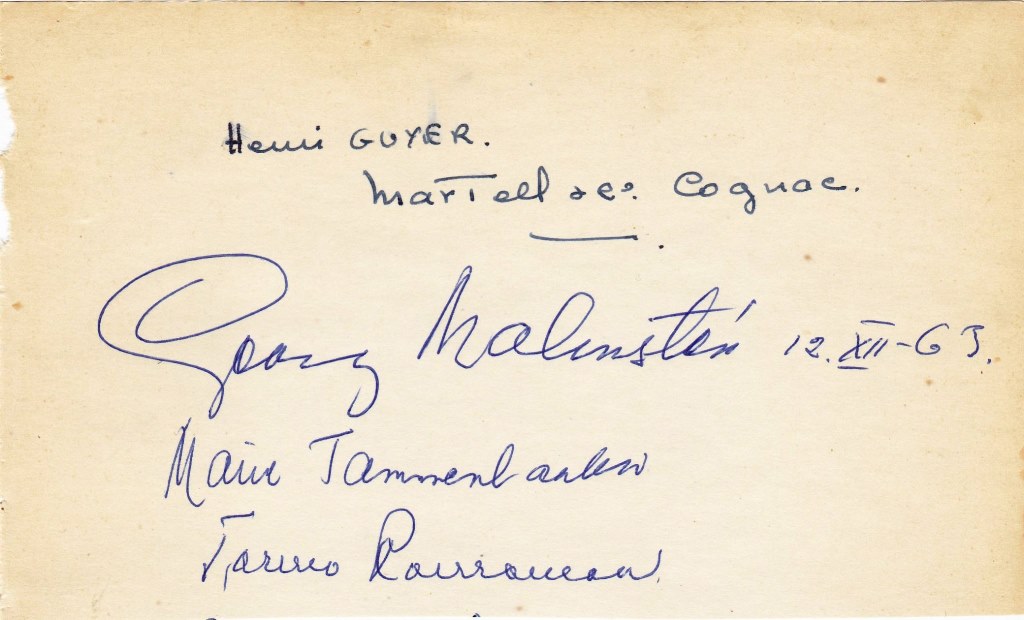 Henri GUYER.
Martell & Co. Cognac.
Georg Malmstén 12. XII-63.
Maire Tammenlaakso
Tarmo